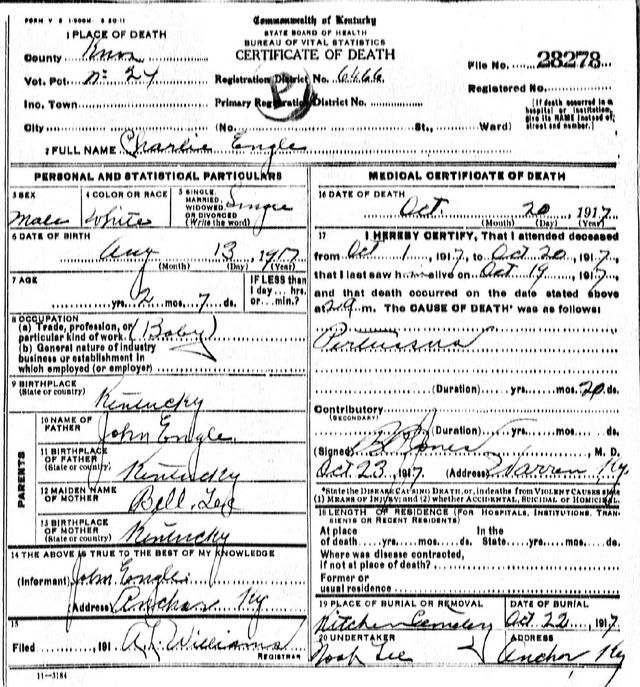 FORM V S 1-500M. 5 20-11
Commonwealth of Kentucky
STATE BOARD OF HEALTH
BUREAU OF VITAL STATISTICS
CERTIFICATE OF DEATH
1 PLACE OF DEATH
County Knox
Vot. Pct. No 24
Registration District No. 6466
File No. 28278
Registered No.
Inc. Town
Primary Registration District No.
[If death occurred in a hospital or institution, give its NAME instead of street and number.]
City (No. St., Ward)
2 FULL NAME Charlie Engle
PERSONAL AND STATISTICAL PARTICULARS
3 SEX
Male
4 COLOR OR RACE
White
5 SINGLE, MARRIED, WIDOWED OR DIVORCED (Write the word)
Single
6 DATE OF BIRTH
Aug 13, 1917
(Month) (Day) (Year)
7 AGE
yrs. 2 mos. 7 ds.
IF LESS than 1 day... hrs. or... min.?
8 OCCUPATION
(a) Trade, profession, or particular kind of work (Baby)
(b) General nature of industry business or establishment in which employed (or employer)
9 BIRTHPLACE
(State or country)
Kentucky
PARENTS
10 NAME OF FATHER
John Engle
11 BIRTHPLACE OF FATHER
(State or country)
Kentucky
12 MAIDEN NAME OF MOTHER
Bell Lee
13 BIRTHPLACE OF MOTHER
(State or country)
Kentucky
14 THE ABOVE IS TRUE TO THE BEST OF MY KNOWLEDGE
(Informant) John Engle
(Address) Anchor Ky
15
Filed, 191 Williams
REGISTRAR
11-3184
MEDICAL CERTIFICATE OF DEATH
16 DATE OF DEATH
Oct. 20, 1917
(Month) (Day) (Year)
17 I HEREBY CERTIFY, That I attended deceased
from Oct 1, 1917, to Oct 20, 1917,
that I last saw h alive on Oct 19, 1917,
and that death occurred on the date stated above
at m. The CAUSE OF DEATH* was as follows:
(Duration) yrs. mos. 20 ds.
Contributory
(SECONDARY)
(Duration) yrs. mos. ds.
(Signed) Jones, M. D.
Oct 23, 1917 (Address) Warren Ky
*State the DISEASE CAUSING DEATH, or, in deaths from VIOLENT CAUSES state
(1) MEANS OF INJURY; and (2) whether ACCIDENTAL, SUICIDAL or HOMICIDAL
18 LENGTH OF RESIDENCE (FOR HOSPITALS, INSTITUTIONS, TRANSIENTS OR RECENT RESIDENTS)
At place of death yrs. mos. ds. In the State yrs. mos. ds.
Where was disease contracted, if not at place of death?
Former or usual residence
19 PLACE OF BURIAL OR REMOVAL
Kitchen Cemetery
DATE OF BURIAL
Oct 22, 1917
20 UNDERTAKER
Noah Lee
ADDRESS
Anchor Ky